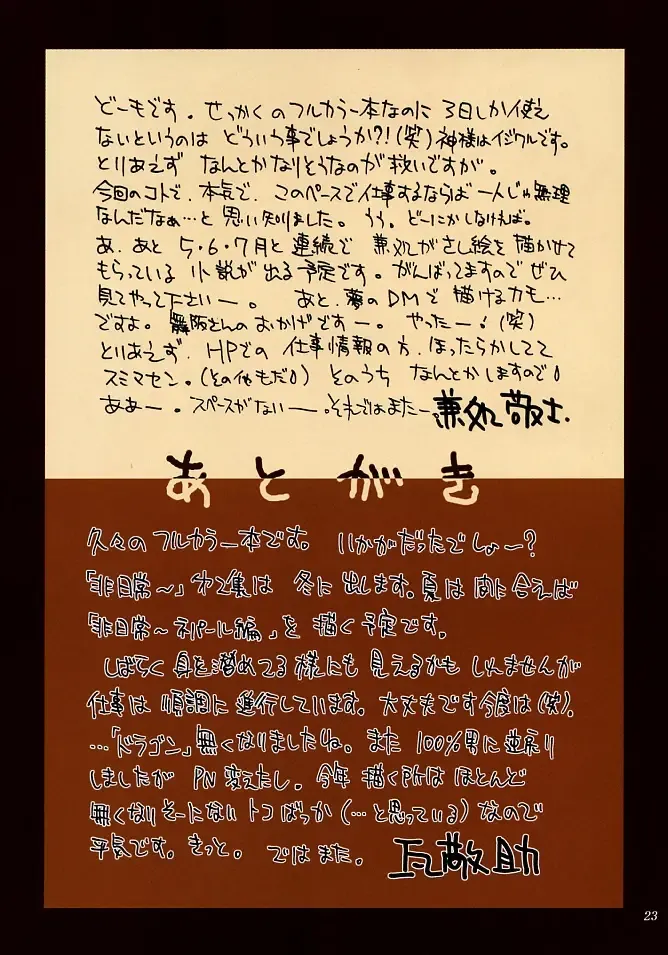 どーもです。せっかくのフルカラー本なのに3日しか使え
ないというのはどういう事でしょうか?!(笑)神様はイジワルです。
とりあえずなんとかなりそうなのが救いですが。
今回のコトで、本気で、このペースで仕事するならば一人じゃ無理
なんだなぁ…と思い知りました。うう。どーにかしなければ。
あ、あと5・6・7月と連続で兼処がさし絵を描かせて
もらっている小説が出る予定です。がんばってますのでぜひ
見てやって下さいー。あと、夢のDMで描けるカモ…
ですよ。舞阪さんのおかげですー。やったー!(笑)
とりあえず、HPでの仕事情報の方、ほったらかしてて
スミマセン。(その他もだ!)そのうちなんとかしますので!
ああー。スペースがないー。それではまたー。兼処敬士.
あとがき
久々のフルカラー本です。いかがだったでしょー?
「非日常〜」第2集は冬に出します。夏は間に合えば
「非日常〜ネパール編」を描く予定です。
しばらく身を潜めてる様にも見えるかもしんませんが
仕事は順調に進行しています。大丈夫です今度は(笑)。
…「ドラゴン」無くなりましたね。また100%男に逆戻り
しましたがPN変えたし。今年描く所はほとんど
無くなりそーにないトコばっか(…と思っている)なので
平気です。きっと。ではまた。瓦敬助
23